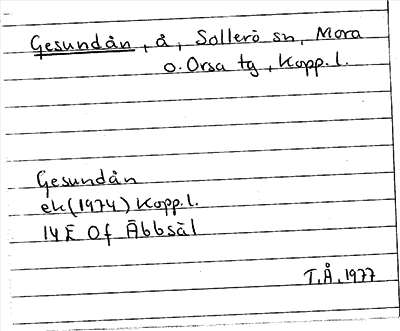 Gesundån, å, Sollerö sn, Mora
o. Orsa tg, Kopp.l.
Gesundån
ek(1974) Kopp.l.
14E Of Äbbsäl
T.Å. 1977